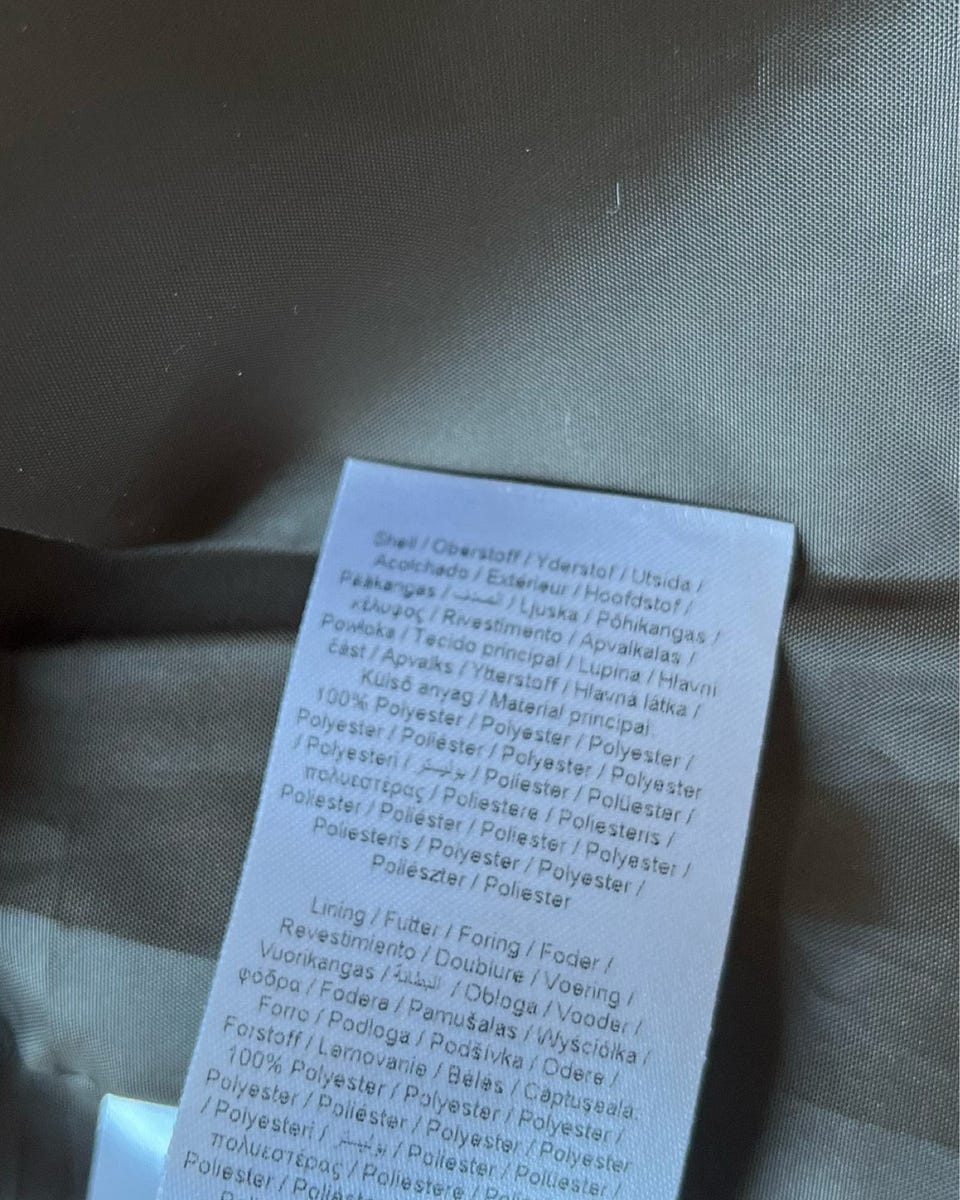 Shell / Oberstoff / Yderstof / Utsida /
Acolchado / Extérieur / Hoofdstof /
Pääkangas / التصنيف / Ljuska / Põhikangas /
κέλυφος / Rivestimento / Apvalkalas /
Powłoka / Tecido principal / Lupina / Hlavní
část / Apvalks / Ytterstoff / Hlavná látka /
Külső anyag / Material principal:
100% Polyester / Polyester / Polyester /
Polyester / Poliéster / Polyester / Polyester
/ Polyesteri / بوليستر / Poliester / Polüester /
πολυεστέρας / Poliestere / Poliesteris /
Poliester / Poliéster / Poliester / Polyester /
Poliesteris / Polyester / Polyester /
Poliészter / Poliester
Lining / Futter / Foring / Foder /
Revestimiento / Doublure / Voering /
Vuorikangas / البطانة / Obloga / Vooder /
φόδρα / Fodera / Pamušalas / Wyściółka /
Forro / Podloga / Podšívka / Odere /
Forstoff / Lemovanie / Bélés / Captuşeala:
100% Polyester / Polyester / Polyester /
Polyester / Poliéster / Polyester / Polyester
/ Polyesteri / بوليستر / Poliester / Polüester /
πολυεστέρας / Poliestere / Poliesteris /
Poliester / Poliéster / Poliester / Polyester /